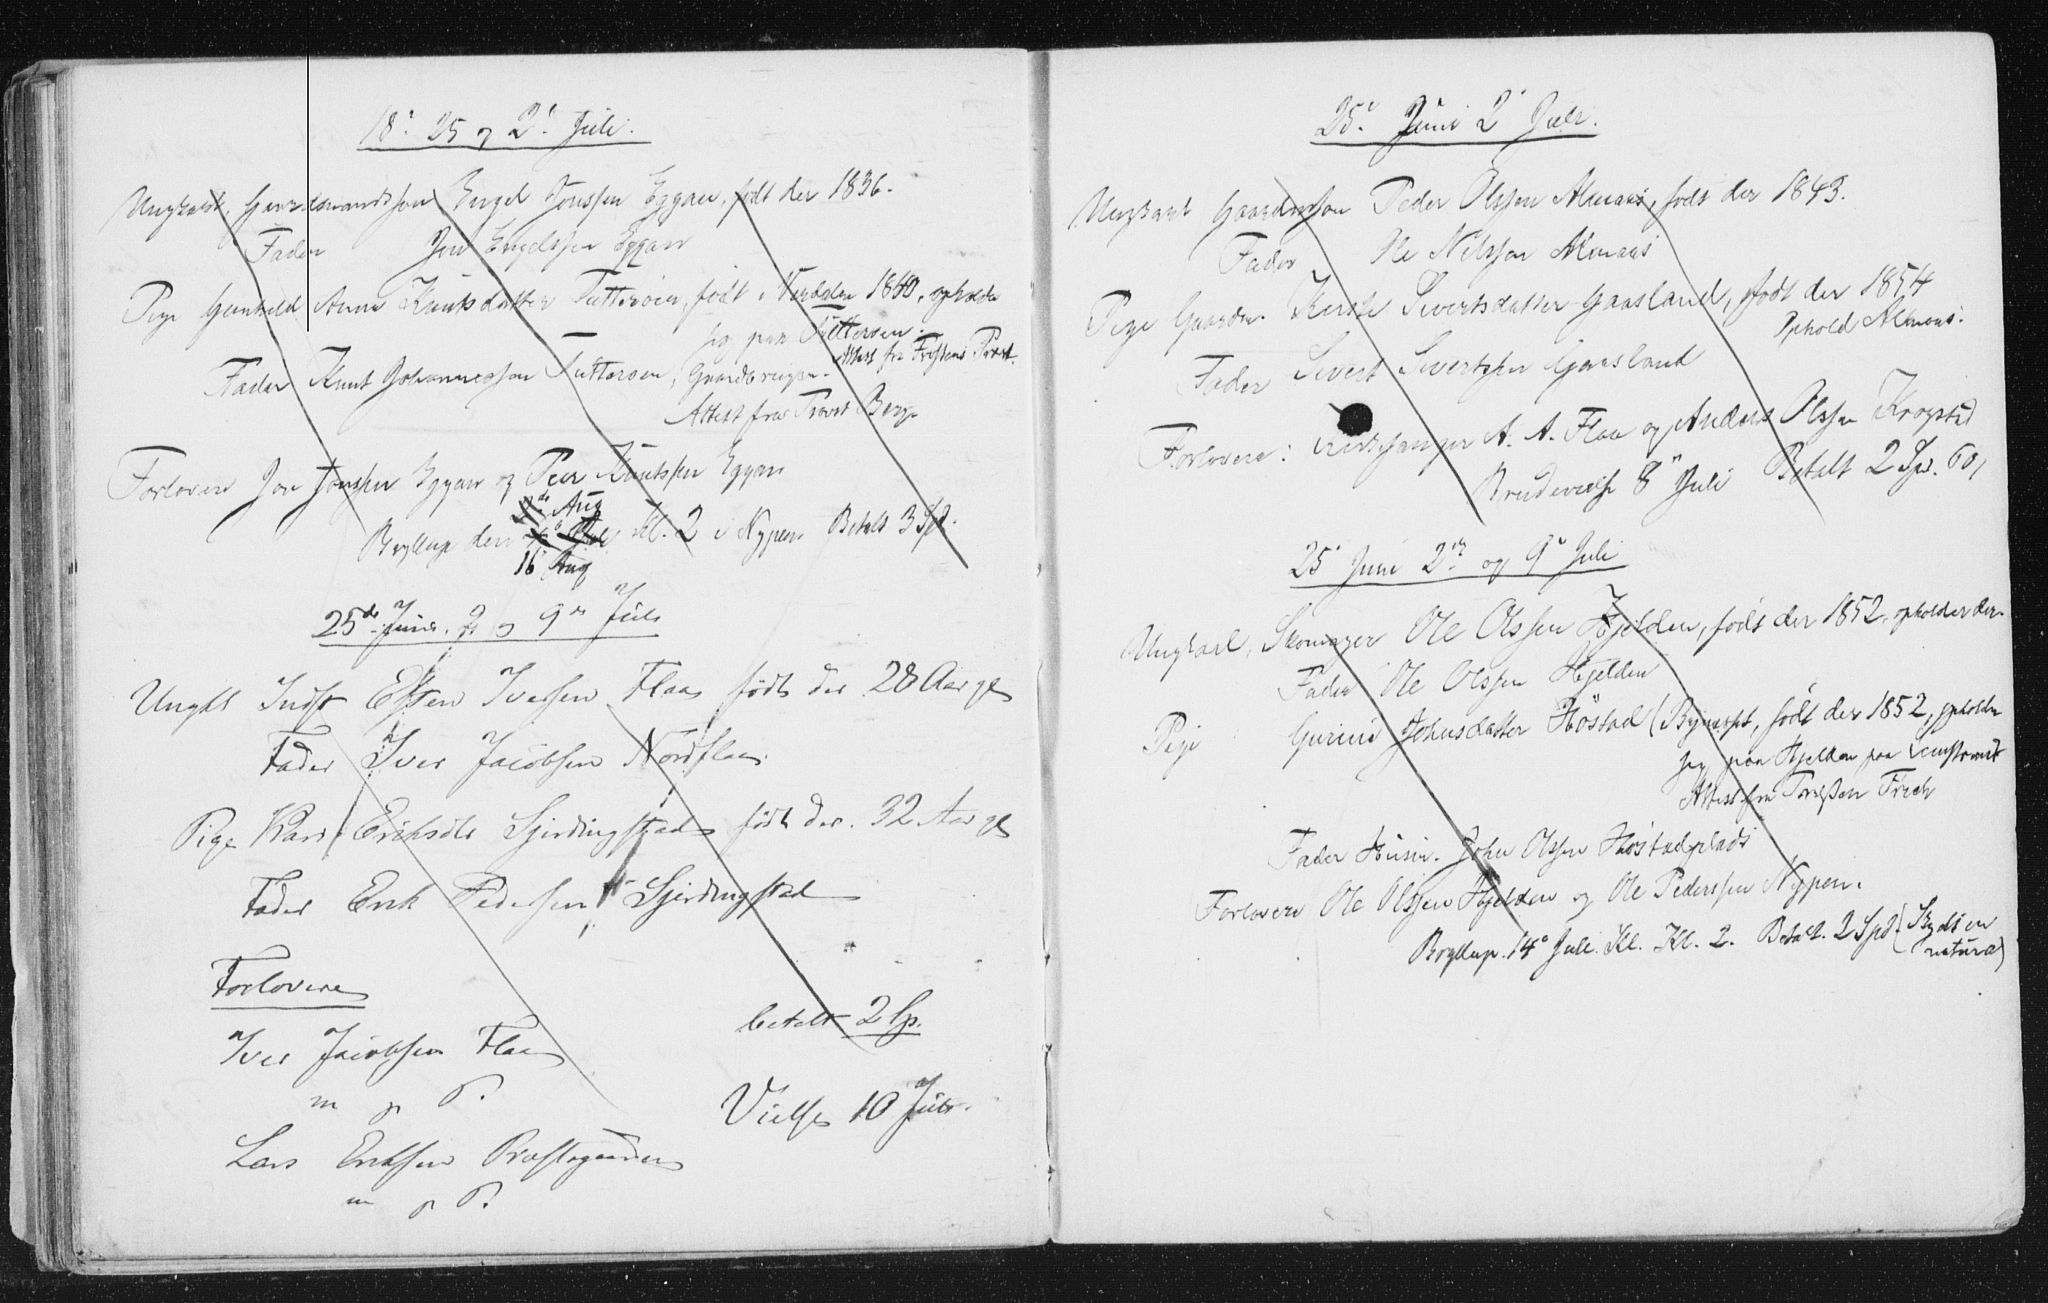 18' 25 og 2' Juli.
Ungkarl, Gaardmandssøn Engel Jonssen Eggan, født der 1836.
Fader Jon Engelssen Eggan
Pige Gunhild Anne Knutsdatter Tutterøen, født i 1840, opholder
sig paa Tutterøen.
Attest fra Præst.
Fader Knut Johannessen Tutterøen, Gaardbruger.
Attest fra Provst Berg
Forlovere Jon Jonssen Eggan og Peer Knutssen Eggan
de Aug
Bryllup den Kl. 2 i Nypen. Betalt 3 Spd.
16' Aug
25de Juni, 2 og 9de Juli
Ungkl Indst Esten Iversen Flaa født der 28 Aar gl
Fader Iver Jacobsen Nordflaa
Pige Kari Eriksdtr Gjerdingstad født der. 32 Aar gl
Fader Erik Pedersen Gjerdingstad
Forlovere
Iver Jacobsen Flaa
betalt 2 Sp.
m p P.
Vielse 10 Juli.
Lars Eriksen Præstegaarden
m p P.
25' Juni 2' Juli.
Ungkarl Gaardmssøn Peder Olssen Almaas, født der 1843.
Fader Ole Nilssen Almaas
Pige Gaardm. Kirsti Sivertsdatter Gaasland, født der 1854
Ophold Almaas.
Fader Sivert Sivertssen Gaasland
Forlovere: Kirkesanger A. A. Flaa og Anders Olssen Krogstad
Brudevielse 8" Juli Betalt 2 Spd. 60,
25' Juni 2den og 9' Juli
Ungkarl, Skomager Ole Olssen Hjelden, født der 1852, opholder der.
Fader Ole Olssen Hjelden
Pige Gurine Johnsdatter Høstad (Bynæsset, født der 1852, opholder
sig paa Hjelden paa Leinstrand
Attest fra Frich
Fader Husm. John Olssen Høstadplads
Forlovere Ole Olssen Hjelden og Ole Pederssen Nypen.
Bryllup. 14' Juli. Kl. Kl. 2. Betalt. 2 Spd. (Bydt en
natura)